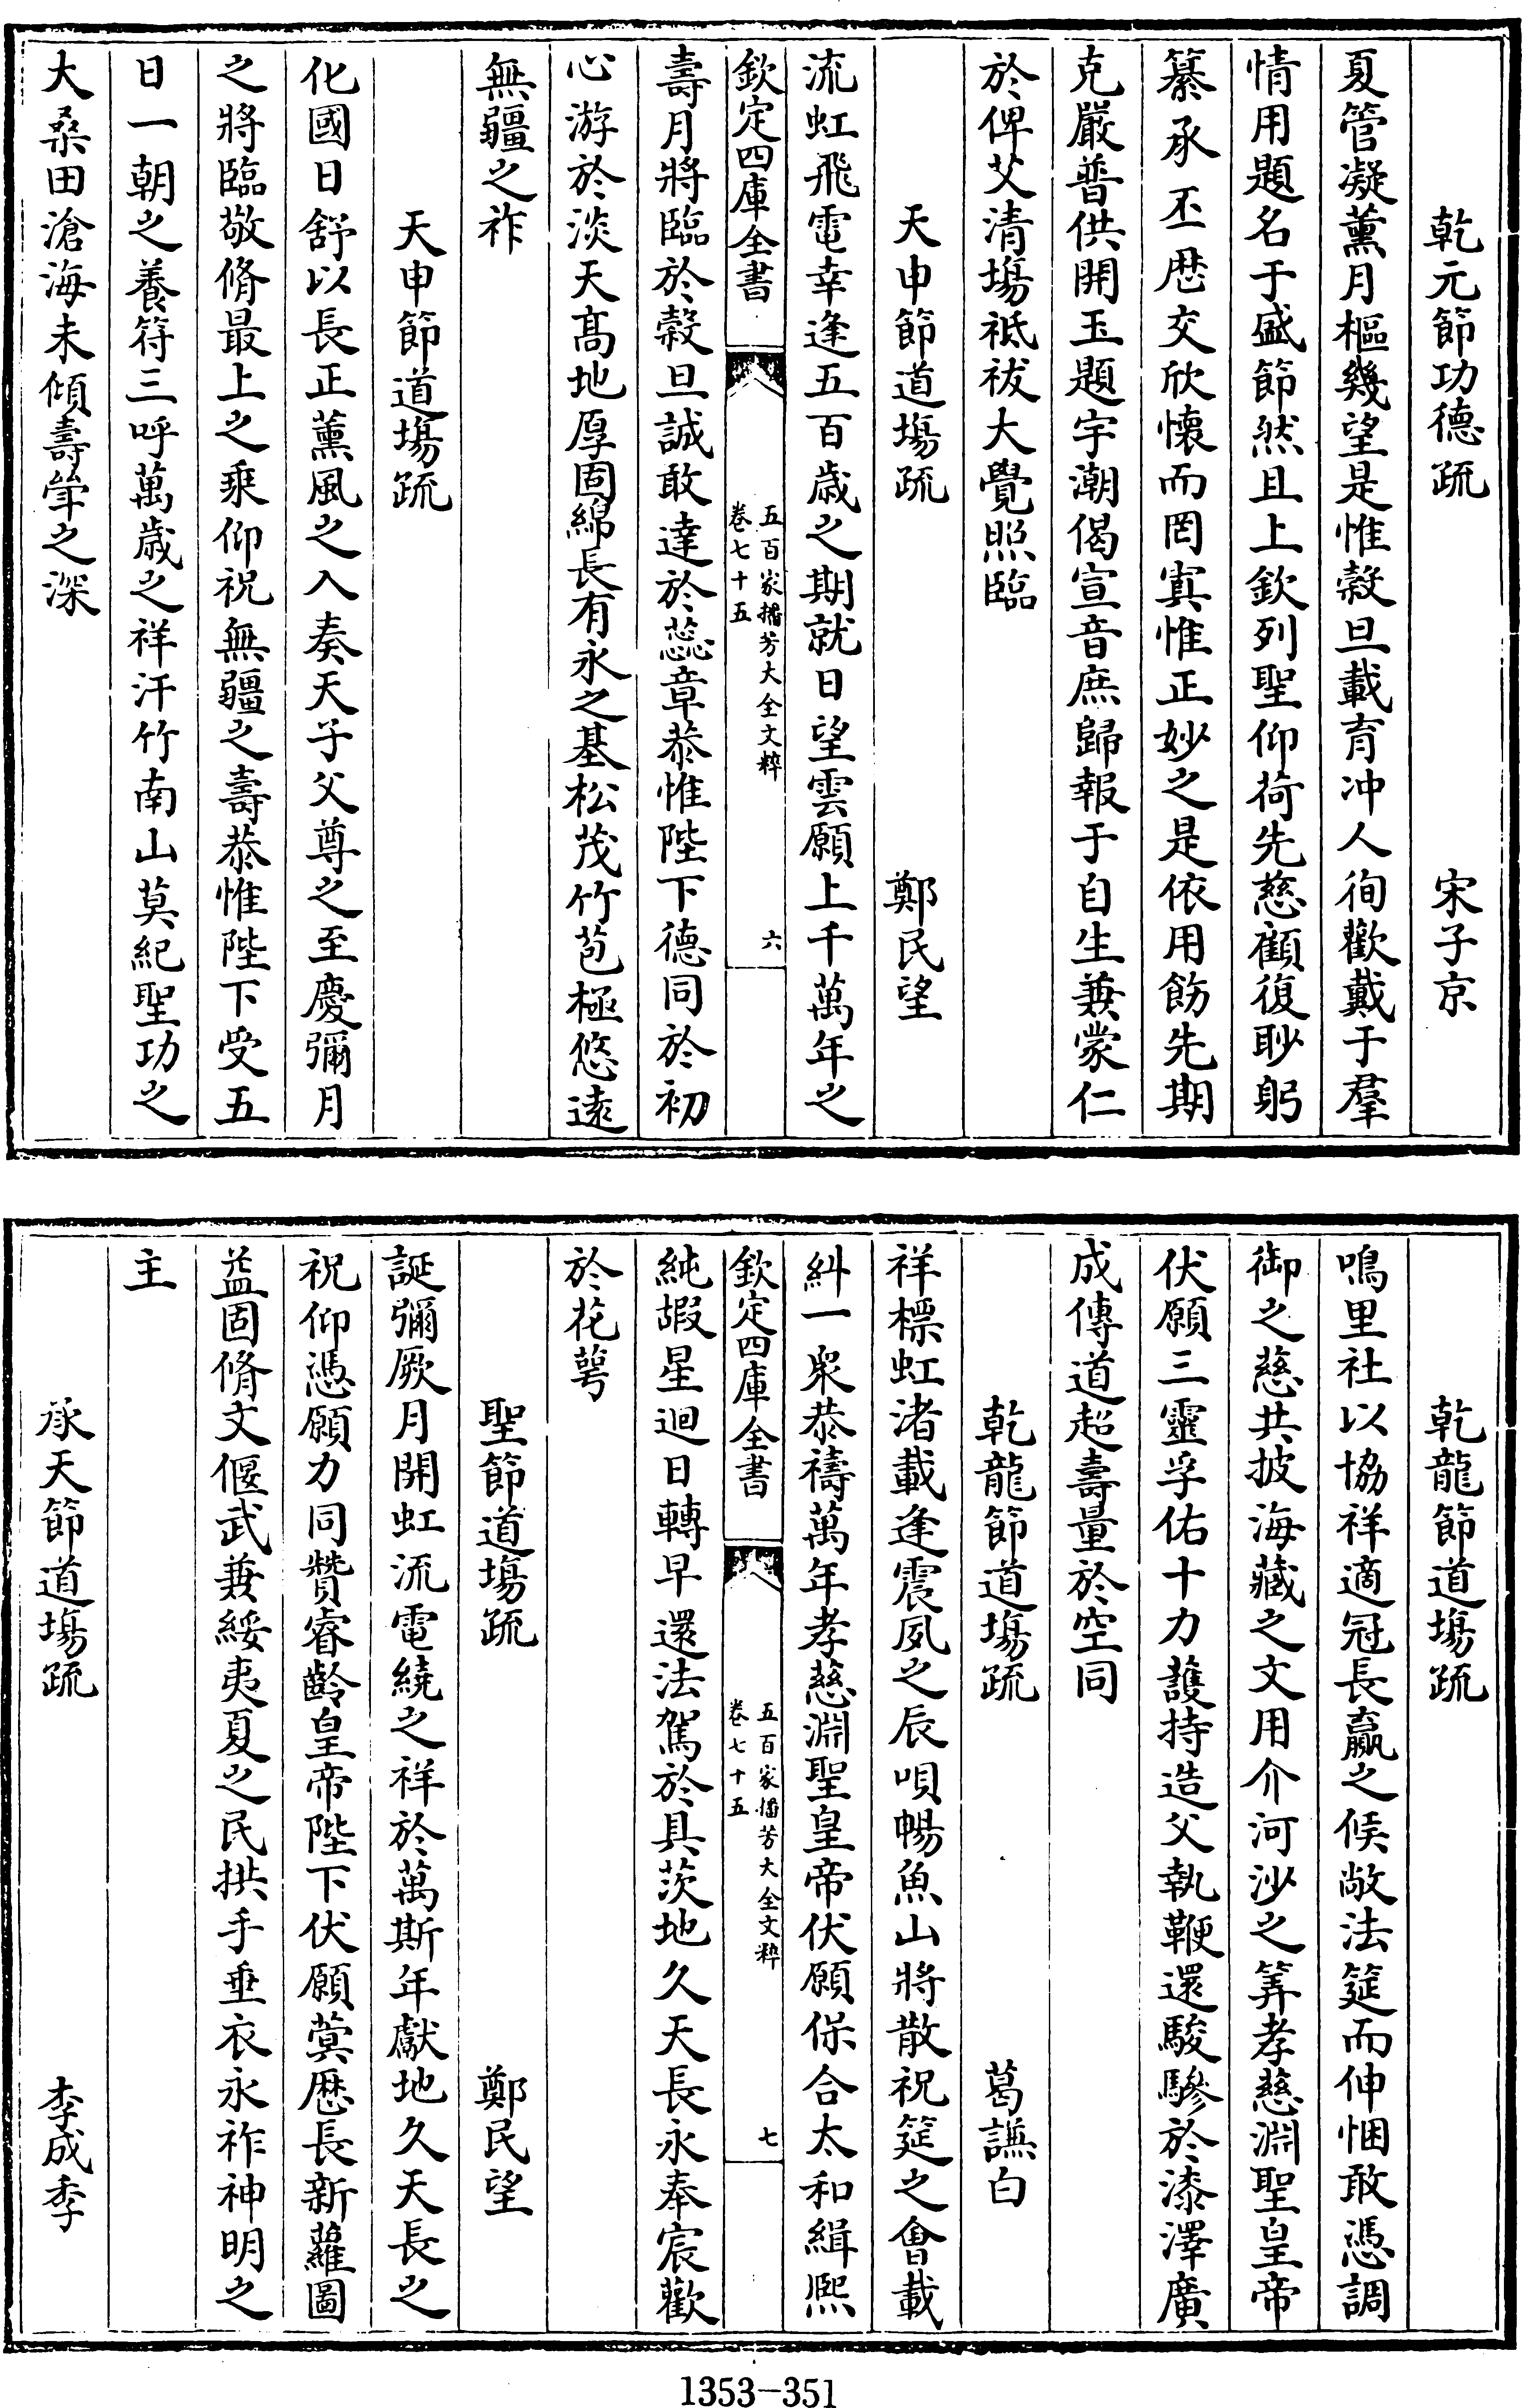 乾元節功德疏　宋子京
夏管凝薰月樞幾望是惟穀旦載育冲人徇歡戴于羣
情用題名于盛節然且上欽列聖仰荷先慈顧復眇躬
纂承丕厯交欣懷而罔寘惟正妙之是依用飭先期
克嚴普供開玉題宇潮偈宣音庶歸報于自生兼蒙仁
於俾艾清塲祗祓大覺照臨
天申節道塲疏　鄭民望
流虹飛電幸逢五百歳之期就日望雲願上千萬年之
欽定四庫全書
五百家播芳大全文粹
卷七十五
六
壽月將臨於穀旦誠敢達於蕊章恭惟陛下德同於初
心游於淡天髙地厚固綿長有永之基松茂竹苞極悠遠
無疆之祚
天申節道塲疏
化國日舒以長正薰風之入奏天子父尊之至慶彌月
之將臨敬脩最上之乘仰祝無疆之壽恭惟陛下受五
日一朝之養符三呼萬歳之祥汗竹南山莫紀聖功之
大桑田滄海未傾壽斝之深
乾龍節道塲疏
鳴里社以協祥適冠長贏之候敞法筵而伸悃敢憑調
御之慈共披海藏之文用介河沙之筭孝慈淵聖皇帝
伏願三靈孚佑十力護持造父執鞭還駿驂於漆澤廣
成傳道超壽量於空同
乾龍節道塲疏　葛謙白
祥標虹渚載逢震夙之辰唄暢魚山將散祝筵之會載
糾一衆恭禱萬年孝慈淵聖皇帝伏願保合太和緝熙
欽定四庫全書
五百家播芳大全文粹
卷七十五
七
純嘏星迴日轉早還法駕於具茨地久天長永奉宸歡
於花萼
聖節道塲疏　鄭民望
誕彌厥月開虹流電繞之祥於萬斯年獻地久天長之
祝仰憑願力同贊睿齡皇帝陛下伏願蓂厯長新蘿圖
益固脩文偃武兼綏夷夏之民拱手垂衣永祚神明之
主
承天節道塲疏　李成季
1353-351